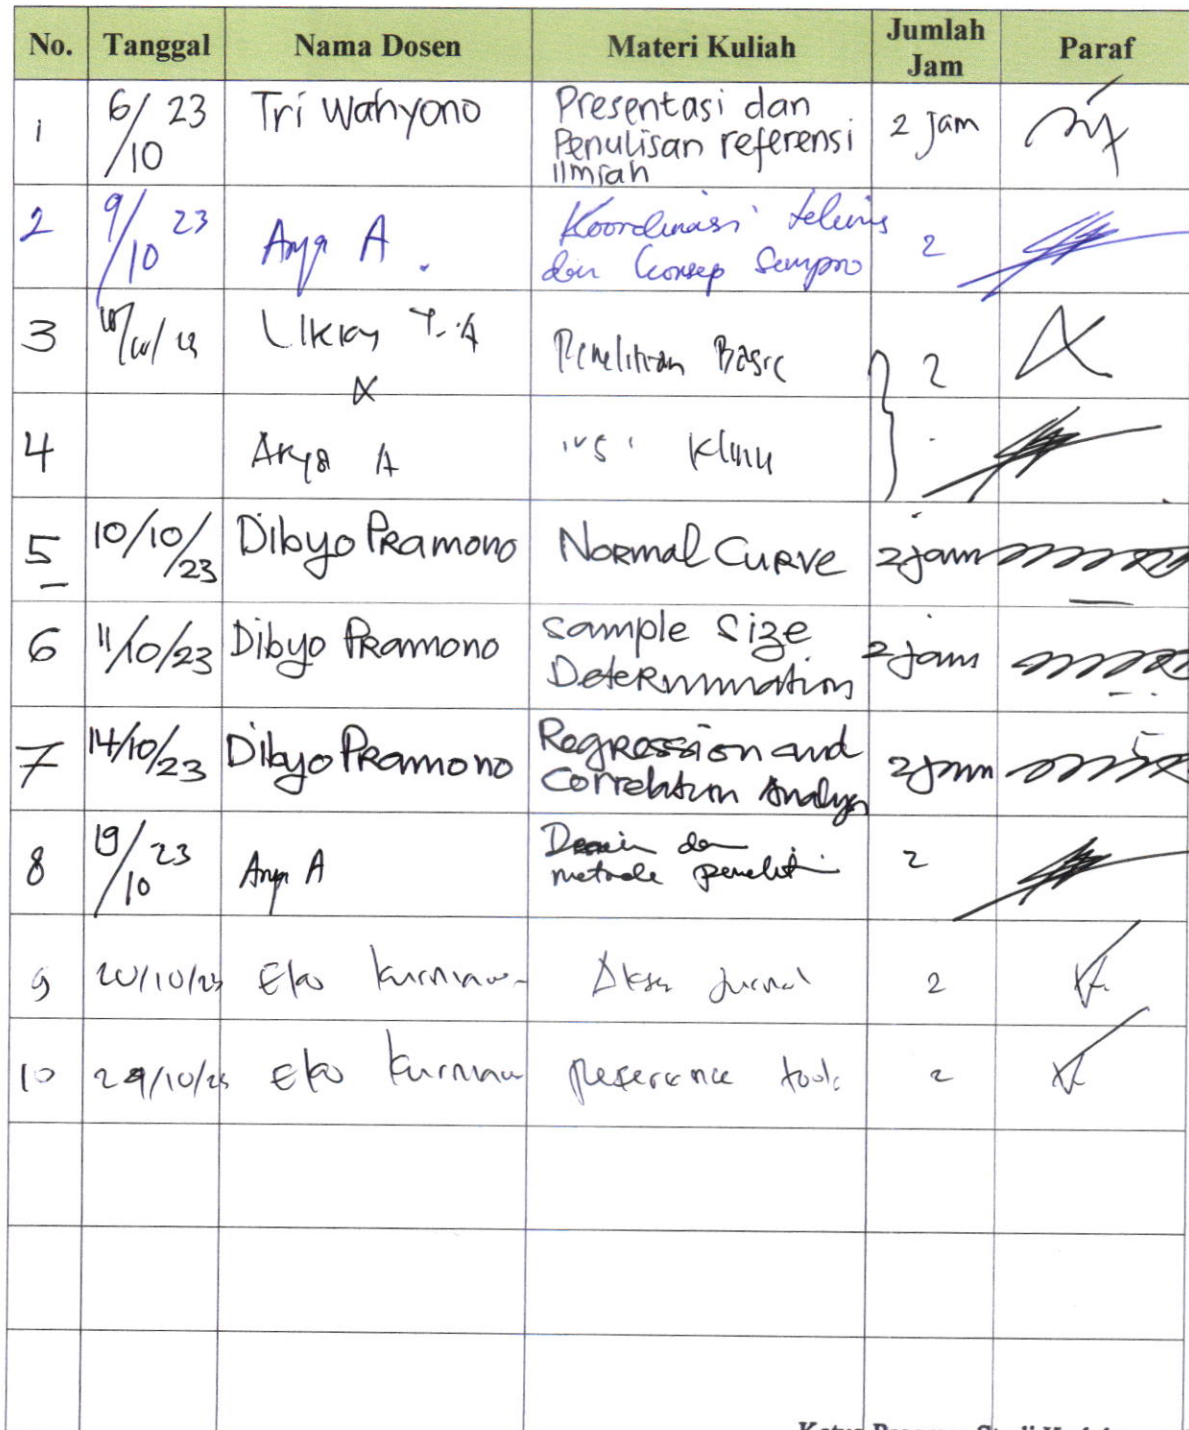 No. Tanggal Nama Dosen Materi Kuliah Jumlah Jam Paraf
1 6/10 23 Tri Wahyono Presentasi dan 2 Jam
Penulisan referensi
Ilmiah
2 9/10 23 Arya A. Koordinasi teknis 2
dan Konsep Sempro
3 T. A Penelitian Basic 2
&
4 Arya A vs Klinik
5 10/10/23 Dibyo Pramono Normal Curve 2 jam
6 11/10/23 Dibyo Pramono Sample Size 2 jam
Determination
7 14/10/23 Dibyo Pramono Regression and 2 jam
Correlation Analys
8 19/10 23 Arya A Desain dan 2
metode peneliti
9 20/10/23 Eko Kurniawan Akses Jurnal 2
10 /10/23 Eko Kurniawan Reference tools 2